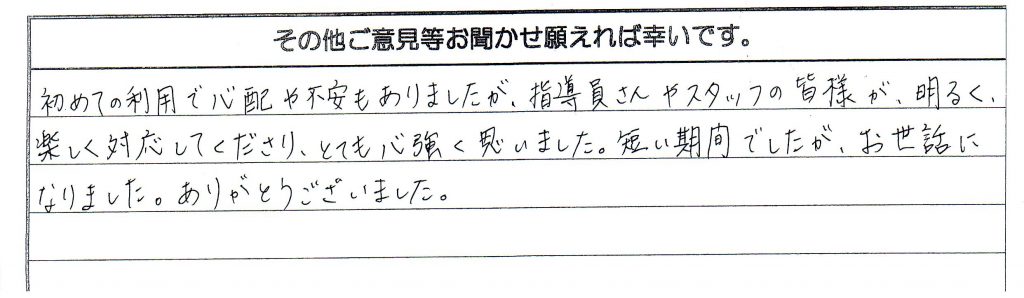 その他ご意見等お聞かせ願えれば幸いです。
初めての利用で心配や不安もありましたが、指導員さんやスタッフの皆様が、明るく、
楽しく対応してくださり、とても心強く思いました。短い期間でしたが、お世話に
なりました。ありがとうございました。